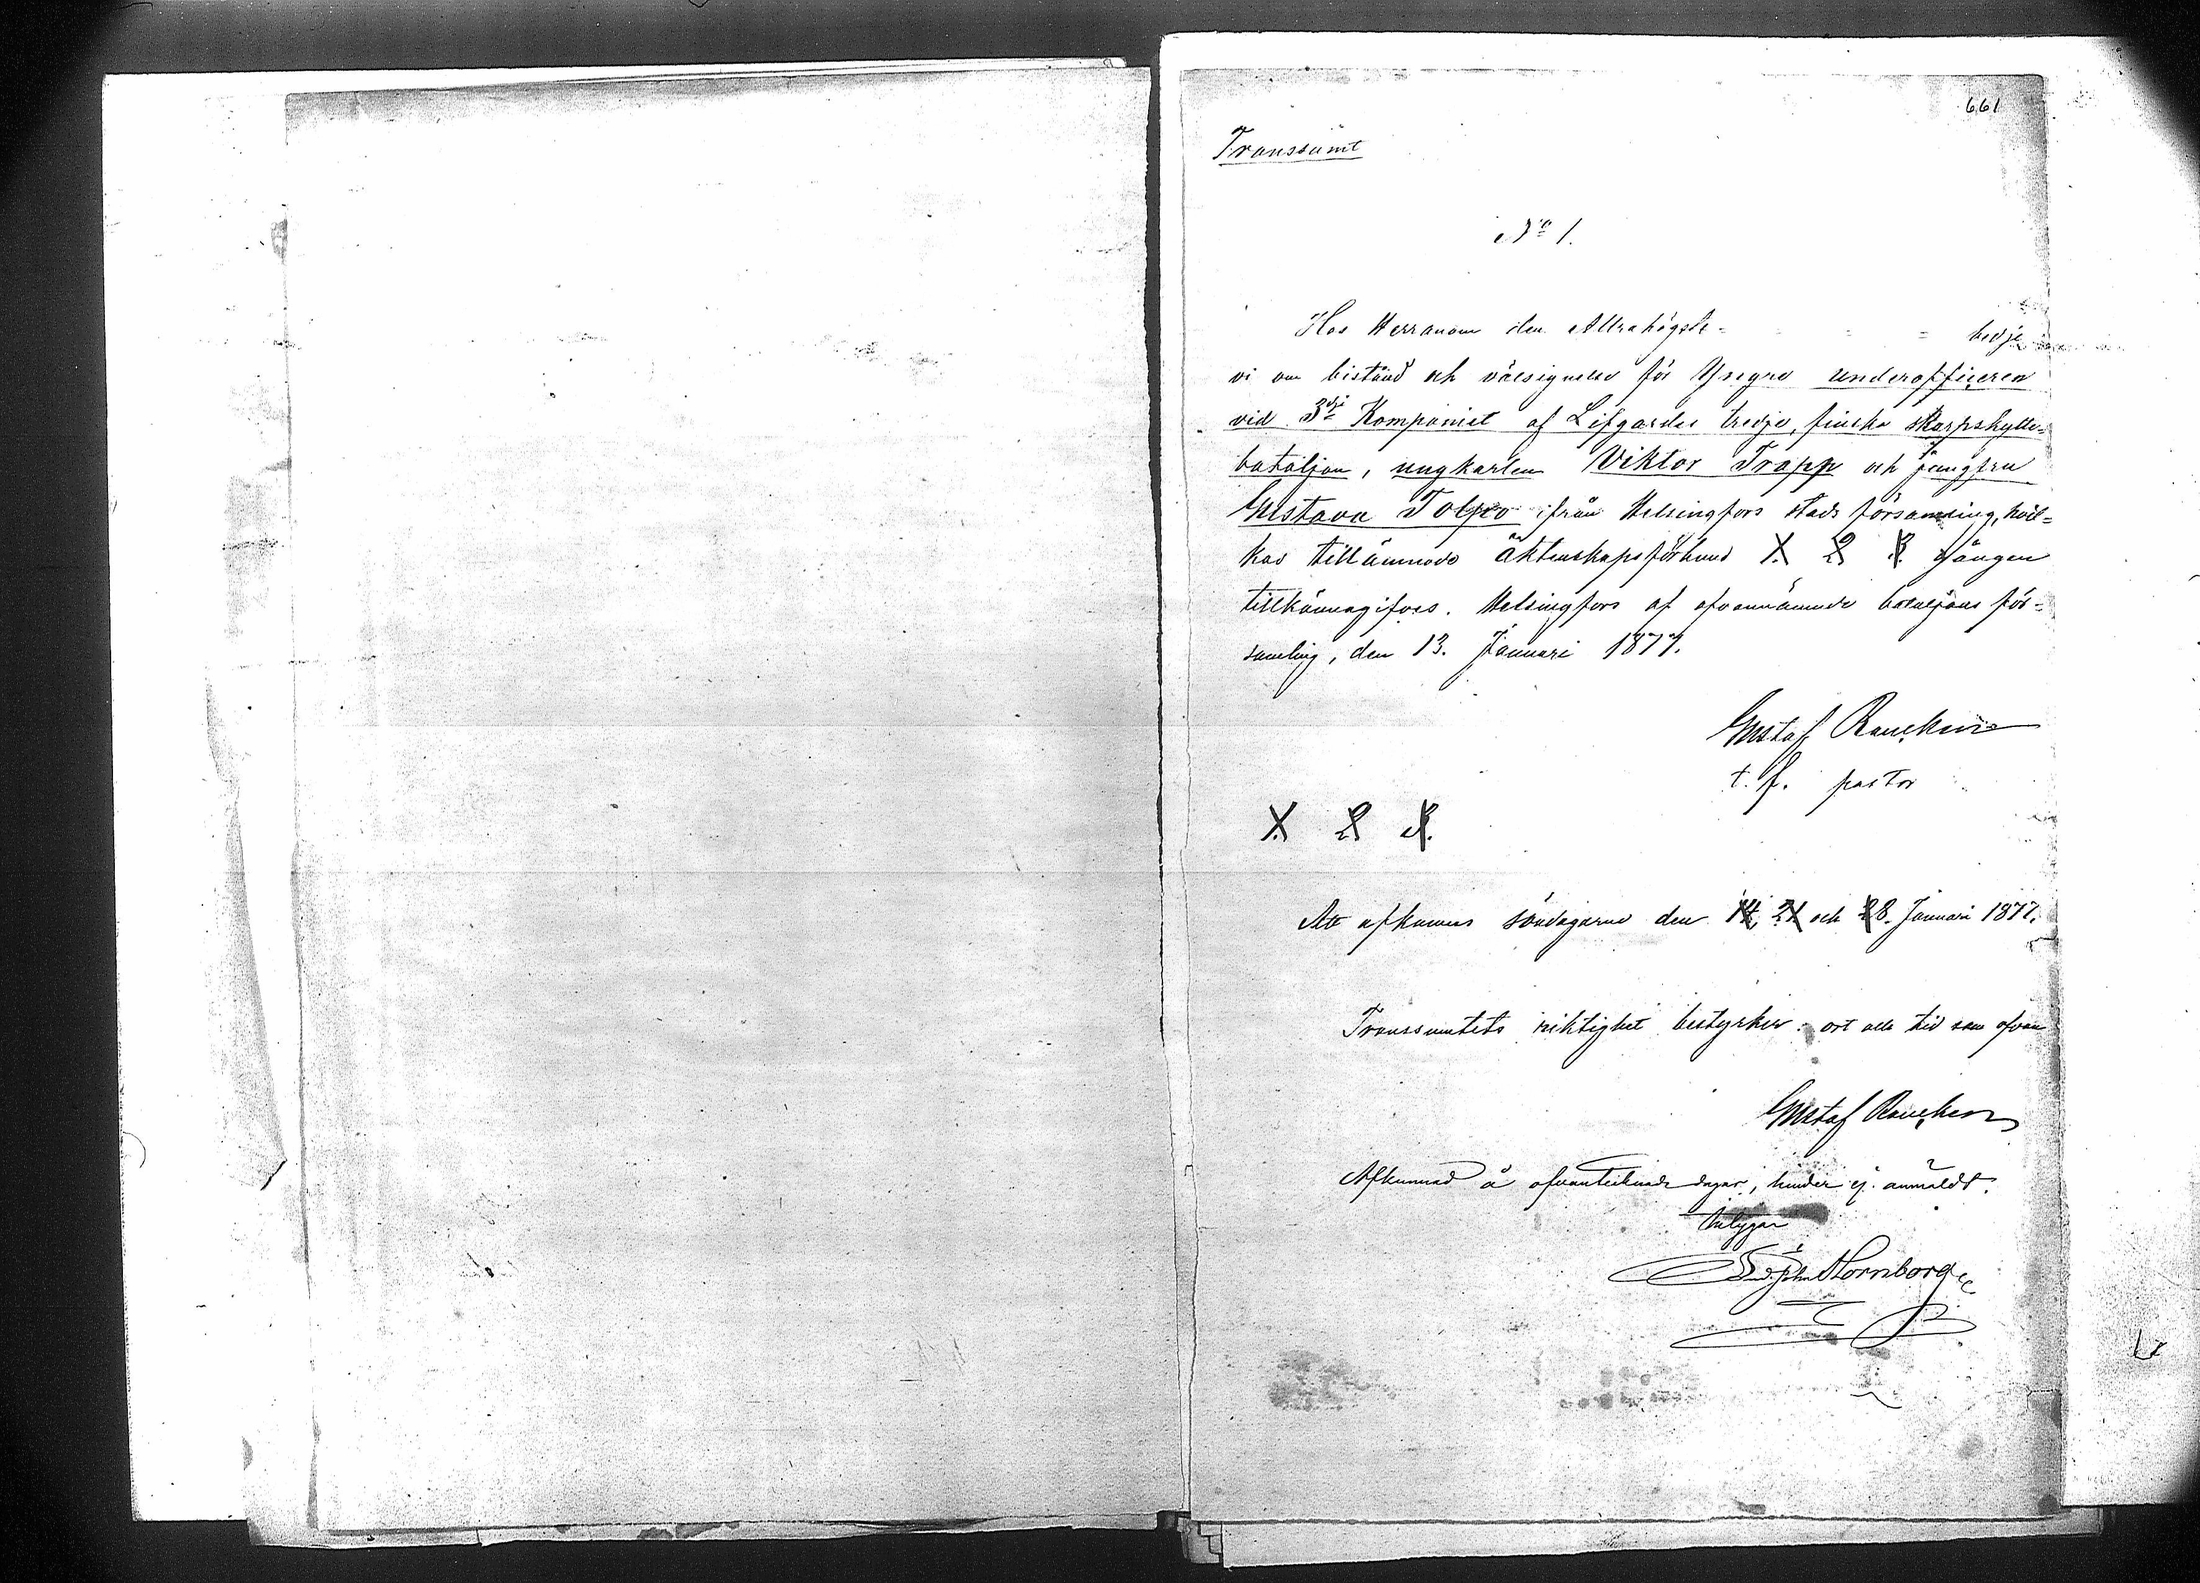 661
Transsumt
No 1.
Hos Herranom den Allrahögste - - = bedje
vi om bistånd och välsignelse för Yngre underofficeren
vid 3dje Kompaniet af Lifgardes tredje, finska skarpskytte-
bataljon, ungkarlen Viktor Trapp och jungfru
Gustava Tolpo ifrån Helsingfors stads församling, hvil-
kas tillämnade äktenskapsförbund 1. 2. 3. gången
tillkännagifves. Helsingfors af ofvannämnde bataljons för-
samling, den 13. Januari 1877.
Gustaf Ranckén
t. f. pastor
1. 2. 3.
Att afkunnas söndagarne den 14, 21. och 28. Januari 1877.
Transsumtets riktighet bestyrker: ort och tid som ofvan
Gustaf Ranckén
Afkunnad å ofvantecknade dagar, hinder ej anmäldt.
intygar
Hornborg